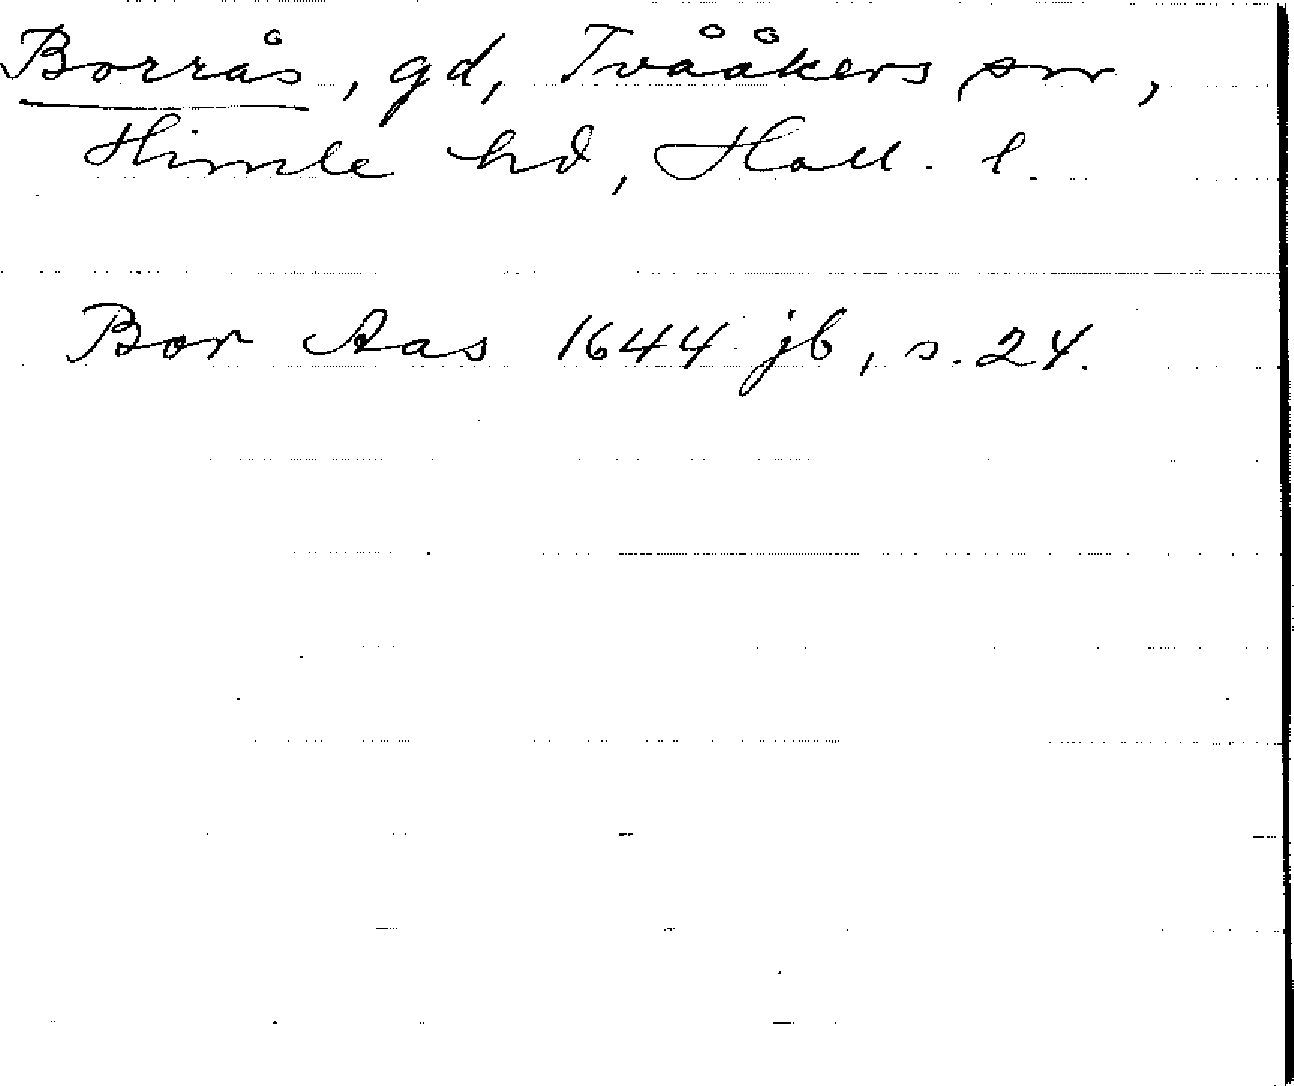 Borrås, gd, Tvååkers sn,
Himle hd, Hall. l.
Bor Aas 1644 jb, s. 24.